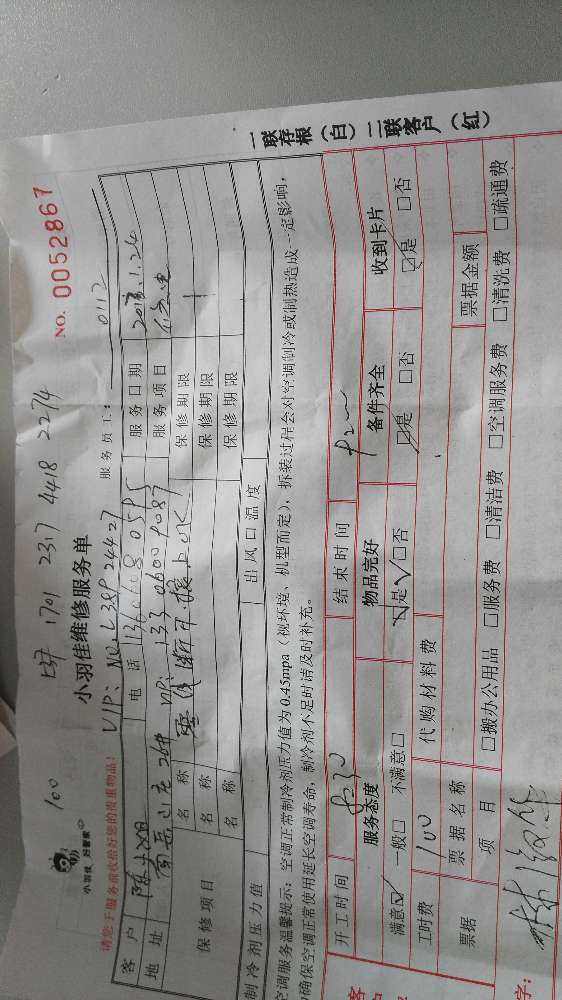 100 1701 2317 4418 2274
NO. 0052867
小羽佳 好管家
小羽佳维修服务单
请您于服务前收拾好您的贵重物品!
VIP: NO.L38P24427 服务员工: 0112
客户 陈大姐 电话 服务日期 2018.1.24
地址 服务项目
保修项目 名称 零线断开.接上OK 保修期限
名称 保修期限
名称 保修期限
制冷剂压力值 出风口温度
空调服务温馨提示: 空调正常制冷剂压力值为0.45mpa(视环境、机型而定),拆装过程会对空调制冷或制热造成一定影响,
确保空调正常使用延长空调寿命,制冷剂不足时请及时补充。
开工时间 结束时间
服务态度 物品完好 备件齐全 收到卡片
满意☑ 一般□ 不满意□ ☑是 □否 ☑是 □否 ☑是 □否
工时费 100 代购材料费
票据 票据名称 票据金额
项目 □搬办公用品 □服务费 □清洁费 □空调服务费 □清洗费 □疏通费
字:
一联存根(白) 二联客户(红)